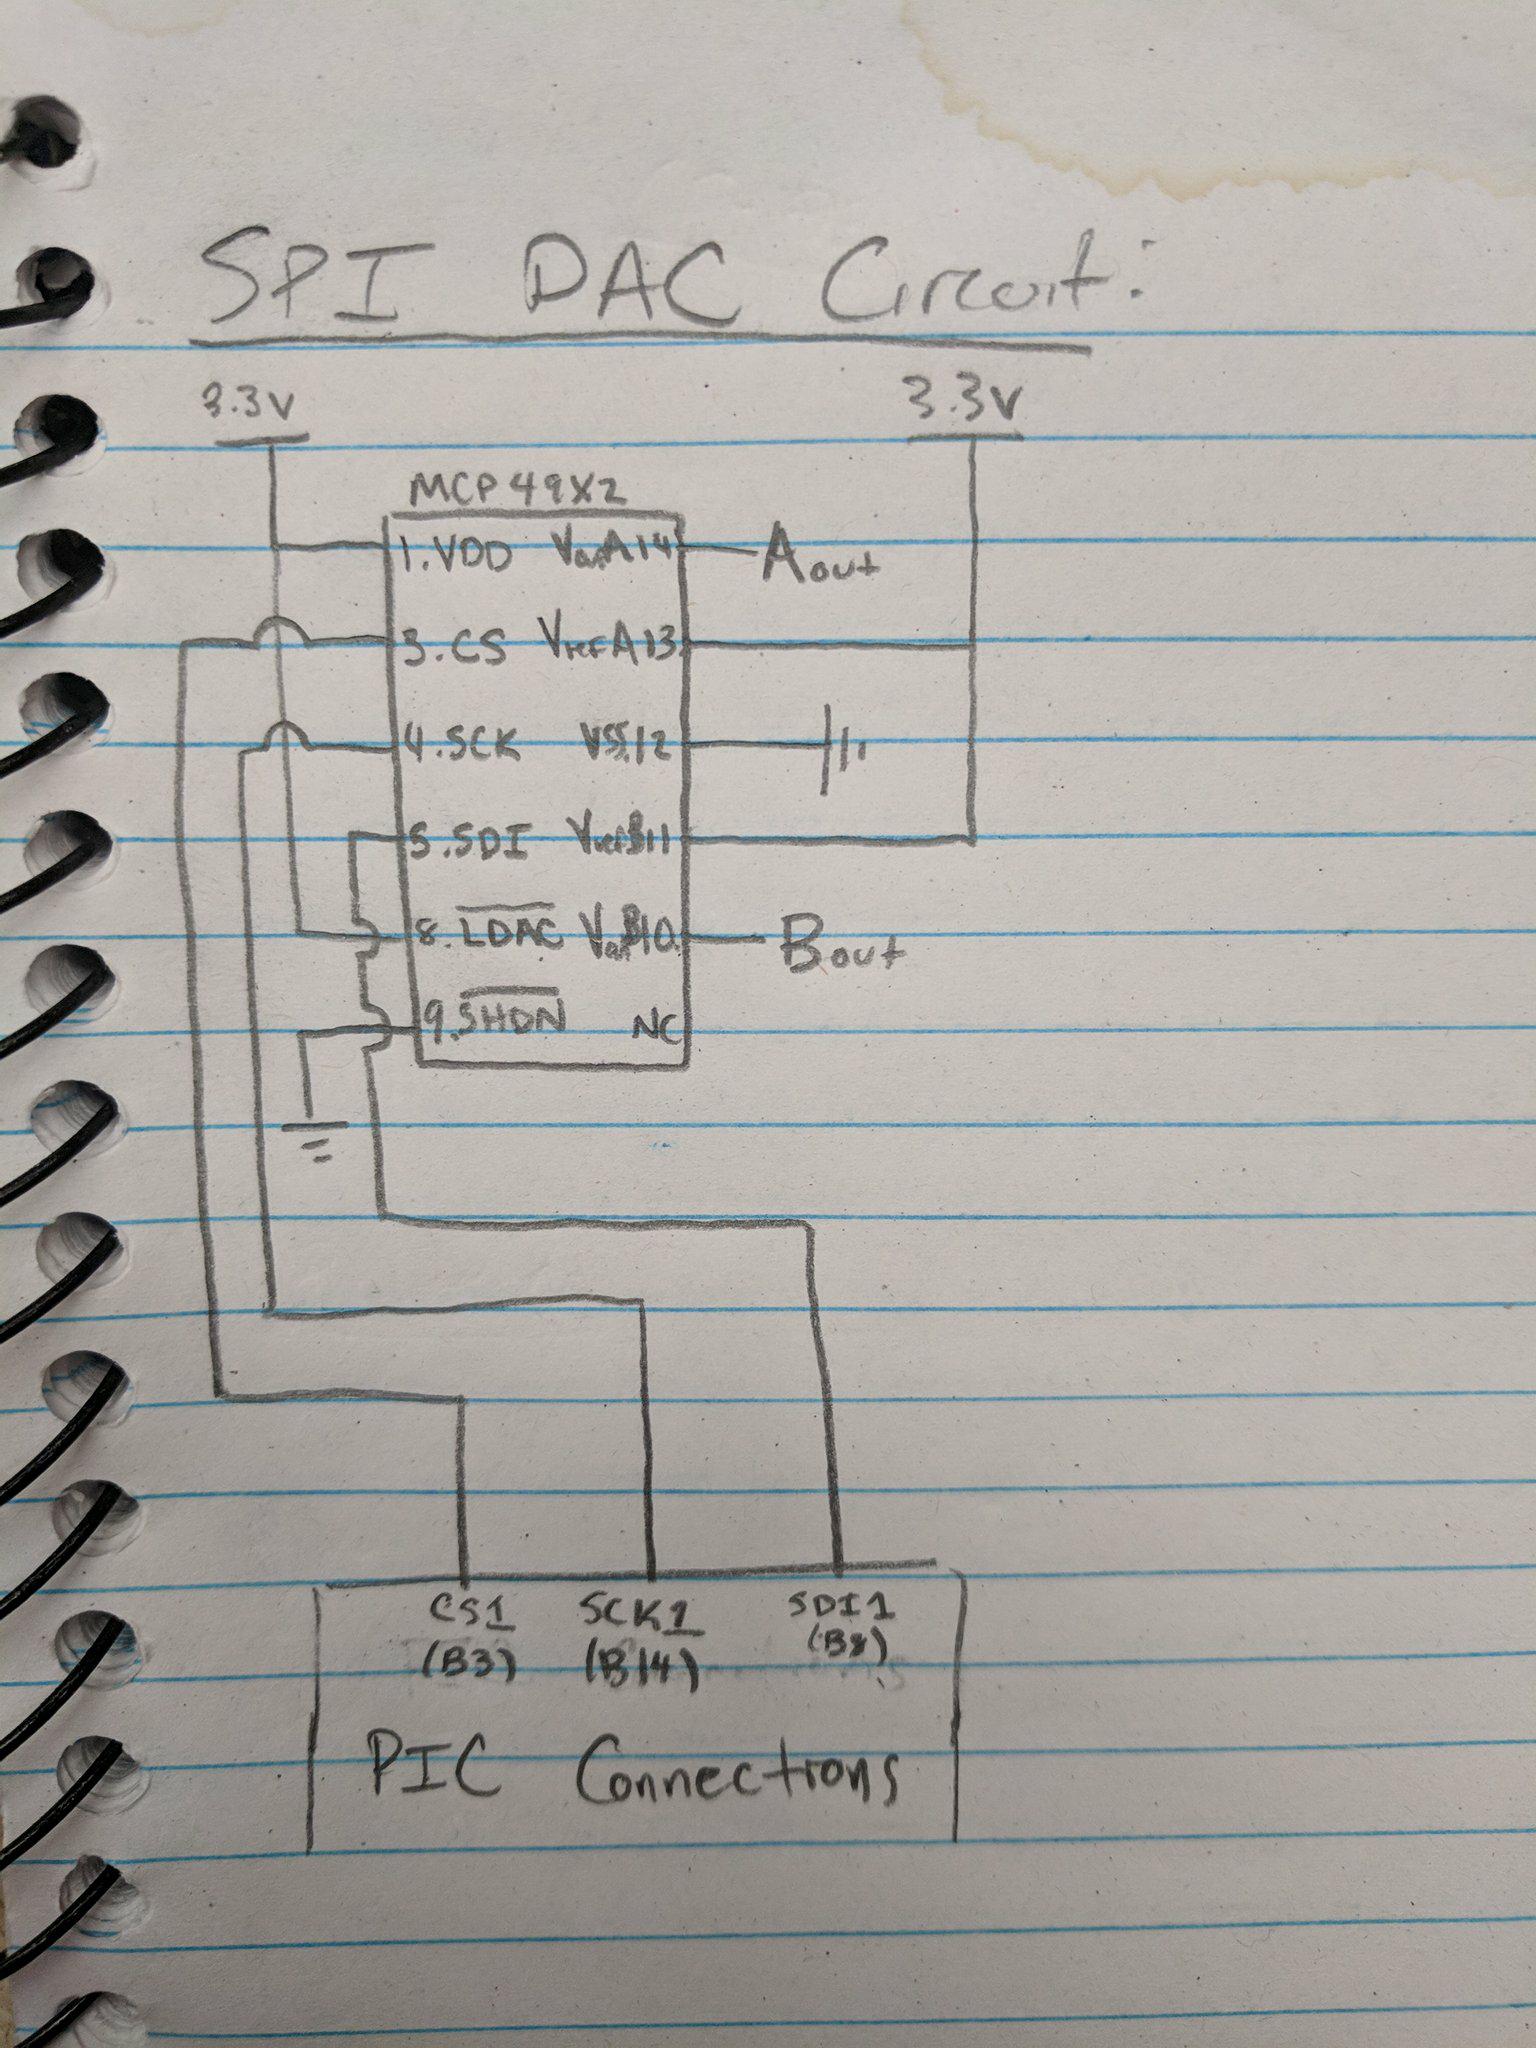 SPI DAC Circuit:
3.3V 3.3V
MCP49X2
1.VDD VoutA14 Aout
3.CS VrefA13
4.SCK VSS.12
5.SDI VrefB11
8.LDAC VoutB10 Bout
9.SHDN NC
CS1 SCK1 SDI1
(B3) (B14) (B8)
PIC Connections